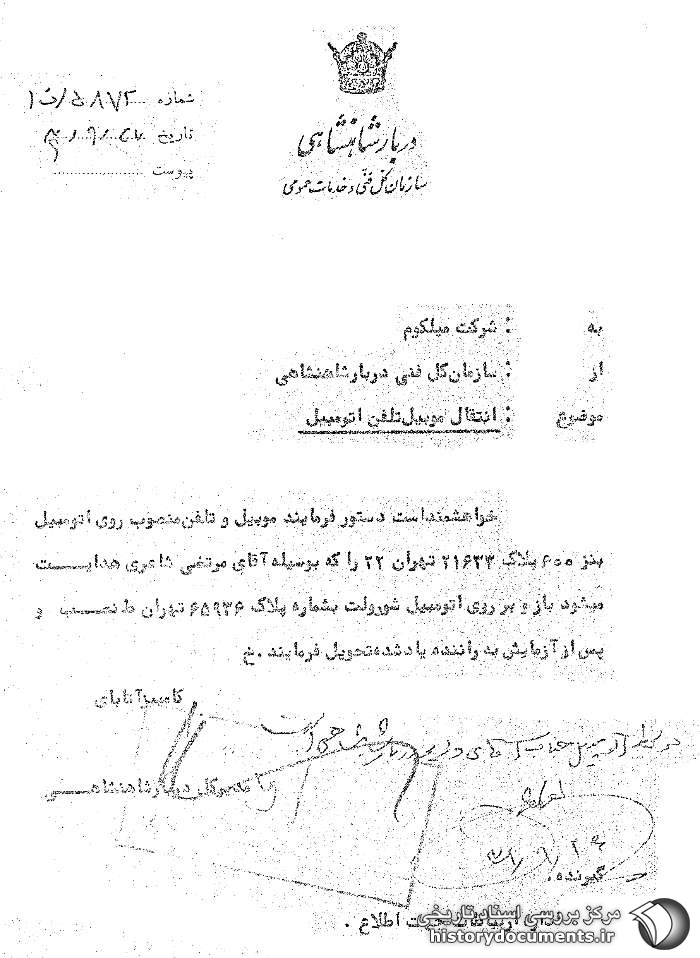 شماره ۵۸۷۲
تاریخ
پیوست
دربار شاهنشاهی
سازمان کل فنی و خدمات عمومی
به : شرکت میلکوم
از : سازمان کل فنی دربار شاهنشاهی
موضوع : انتقال موبیل تلفن اتومبیل
خواهشمند است دستور فرمایند موبیل و تلفن منصوب روی اتومبیل
بنز ۶۰۰ پلاک ۲۱۶۳۳ تهران ۲۲ را که بوسیله آقای مرتضی شاعری هدایت
میشود باز و بر روی اتومبیل شورولت بشماره پلاک ۶۵۹۳۶ تهران ط نصب و
پس از آزمایش به راننده یاد شده تحویل فرمایند . خ
کامبیز آتابای
مدیرکل دربار شاهنشاهی
گیرنده .
جهت اطلاع .
مرکز بررسی اسناد تاریخی
historydocuments.ir